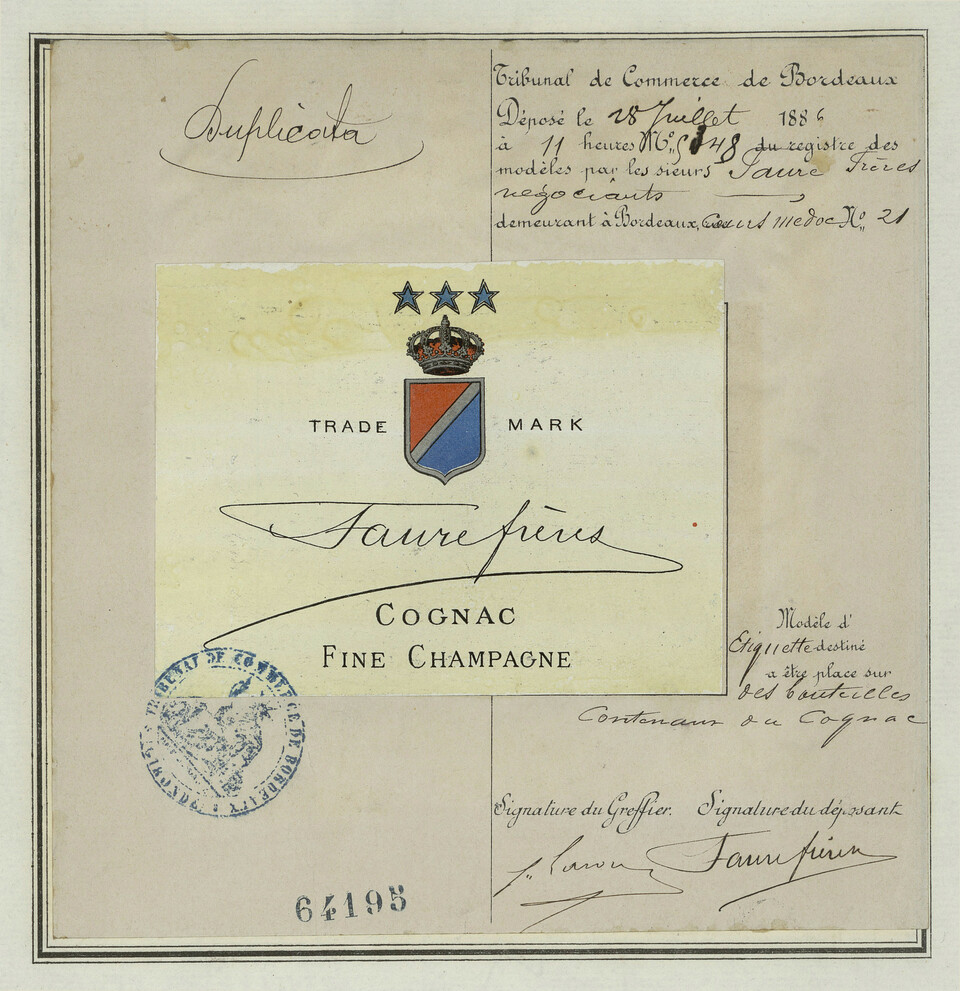 Duplicata
Tribunal de Commerce de Bordeaux
Déposé le 28 Juillet 1886
à 11 heures M. No. du registre des
modèles par les sieurs Faure Frères
négociants
demeurant à Bordeaux, cours medoc No. 21
TRADE MARK
Faure frères
COGNAC
FINE CHAMPAGNE
Modèle d'
Etiquette destiné
a être place sur
des bouteilles
Contenant du Cognac
TRIBUNAL DE COMMERCE DE BORDEAUX
Signature du Greffier. Signature du déposant
Faure frères
64195